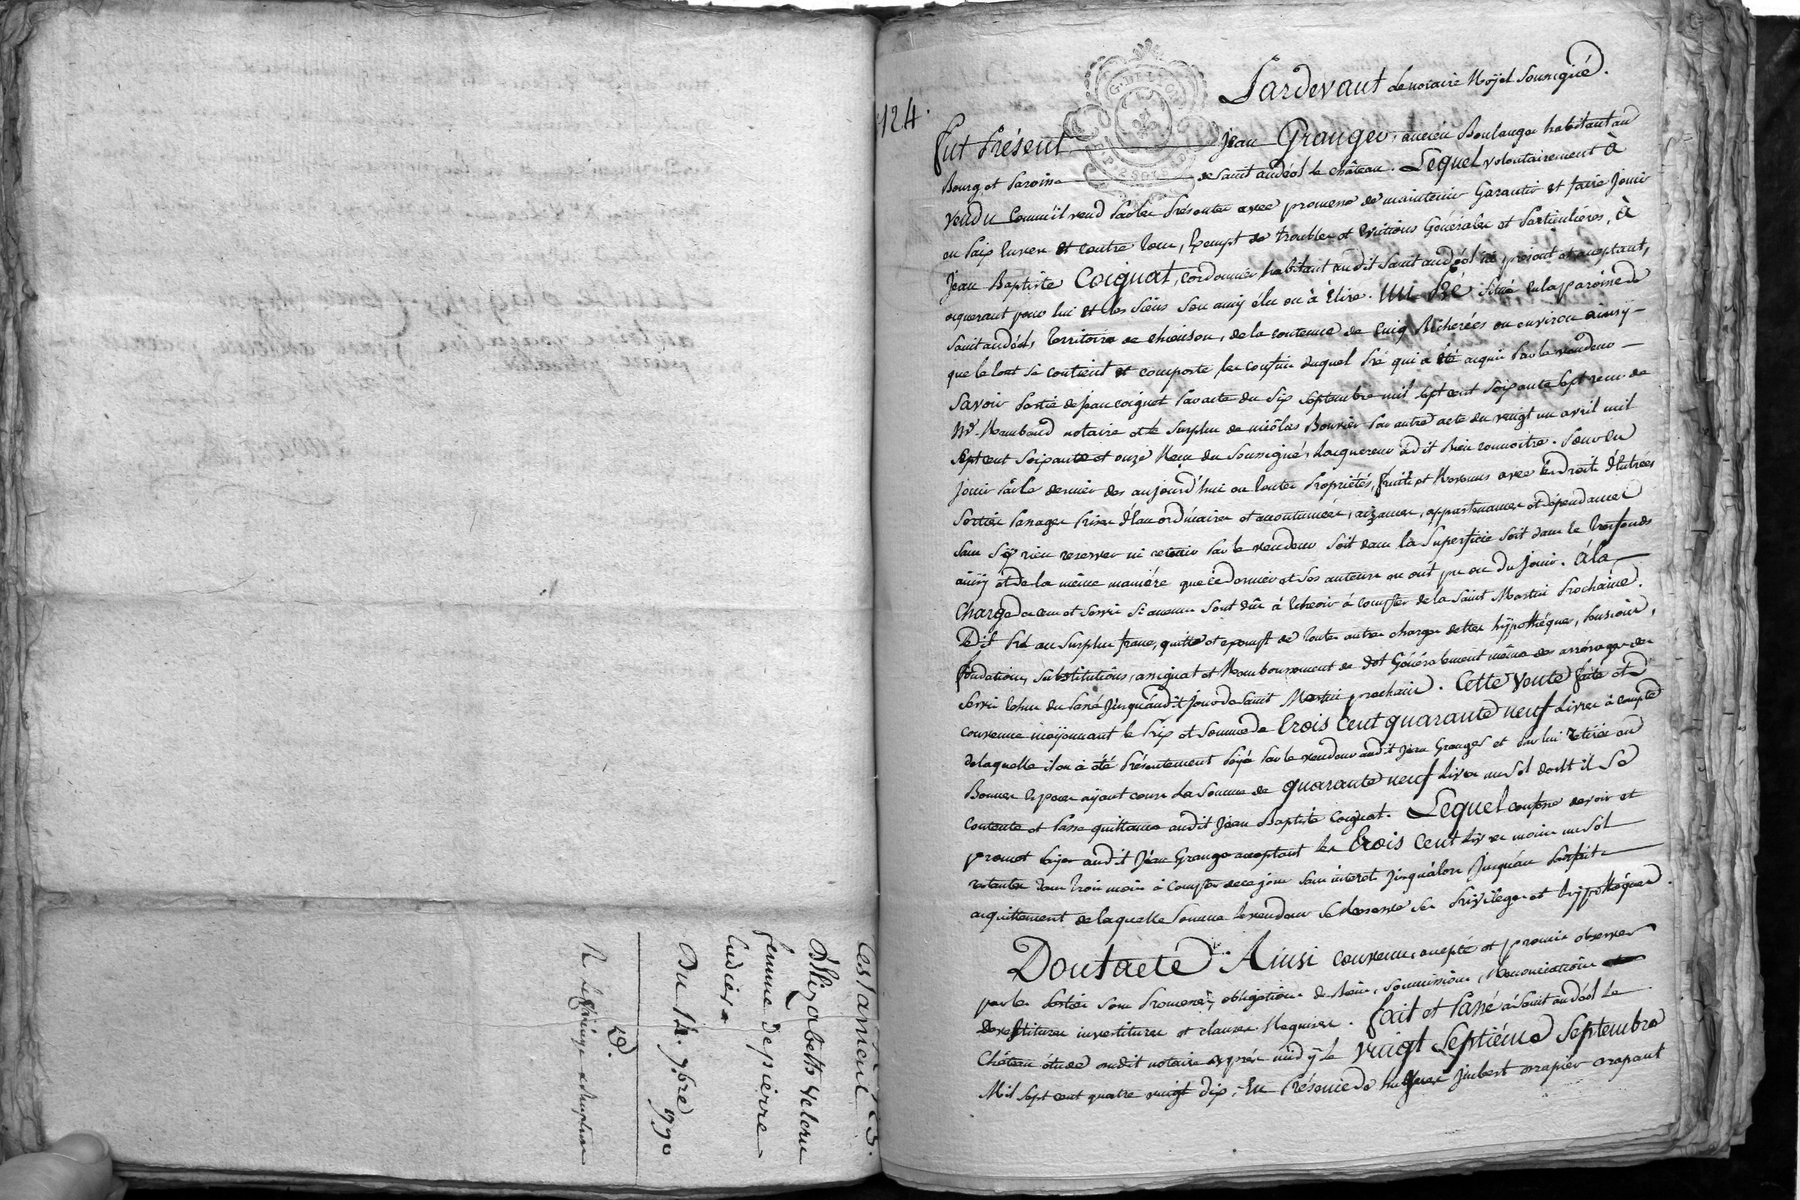 Testament
D'Elizabeth Veleru
femme de pierre
Ludiere
Du 14. 9bre 1790
124.
GEN. DE LYON
Pardevant le notaire Royal soussigné.
fut Présent Jean Granger, ancien Boulanger habitant au
Bourg et Paroisse de Saint andéol le château. Lequel volontairement à
vendu comm'il vend par les Présentes avec promesse de maintenir Garantir et faire Jouir
en paix envers et contre tous, Exempt de troubles et Evictions Générales et Particulières, à
Jean Baptiste Coignat, cordonnier habitant audit Saint andéol ici présent et acceptant,
acquerant pour lui et les siens son amy élu ou à Elire. un Pré situé en la paroisse de
Saint andéol, Territoire de chienson, de la contenue de cinq Bicherées ou environ ainsy
que le tout se contient et comporte les confins duquel Pré qui a été acquis par le vendeur
Savoir partie de Jean coignet par acte du six septembre mil sept cent soixante sept reçu de
Me. Rambaud notaire et le surplus de nicolas Bouvier par autre acte du vingt un avril mil
sept cent soixante et onze Reçu du soussigné, l'acquereur à dit Bien connoitre. Pour en
jouir par ce dernier des aujourd'hui en toutes Propriétés, fruits et Revenus avec les Droits d'Entrées
sorties passages prises d'Eau ordinaires et accoutumées, aizances, appartenances et dépendances
sans s'y rien reserver ni retenir par le vendeur soit dans la superficie soit dans le Trefonds
ainsy et de la même manière que ce dernier et ses auteurs en ont pu ou du Jouir. à la
charge de cens et servis si aucuns sont dûs à Echeoir à compter de la Saint Martin Prochaine.
Ledit Pré au surplus franc, quitte et exempt de toutes autres charges dettes hypothéques, pensions,
fondations, substitutions, assignat et Remboursement de dot Généralement même des arrérages de
servis Echus du passé Jusqu'audit Jour de Saint Martin prochain. Cette vente faite et
convenue moÿennant le Prix et somme de trois cent quarante neuf Livres à compte
de laquelle il en à été Présentement Païé par le vendeur audit Jean Granger et par lui retiré en
Bonnes Especes ayant cours La somme de quarante neuf Livres un sol dont il se
contente et passe quittance audit Jean Baptiste Coignat. Lequel confesse devoir et
promet Païer audit Jean Granger acceptant les trois cent Livres moins un sol
restantes dans trois mois à compter de ce jour sans interet jusqu'alors Jusqu'au parfait
acquittement de laquelle somme le vendeur se Reserve ses Priviléges et hypothéques.
Dont acte Ainsi convenu, accepté et promis observer
par les Parties sous Promesses, obligations de Biens, soumissions, Renonciations
Devestitures investitures et clauses Requises. fait et Passé à Saint andéol le
Château étude dudit notaire après midÿ le vingt septiéme septembre
Mil sept cent quatre vingt dix, En Présence de Jimbert